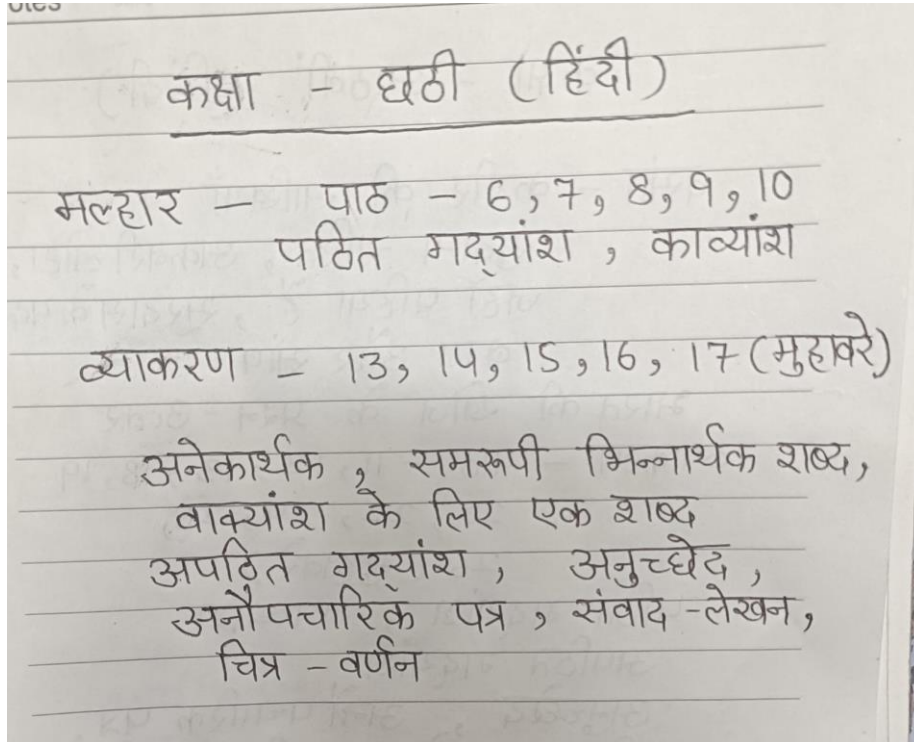 कक्षा - छठी (हिंदी)
मल्हार - पाठ - 6, 7, 8, 9, 10
पठित गद्यांश, काव्यांश
व्याकरण - 13, 14, 15, 16, 17 (मुहावरे)
अनेकार्थक, समरूपी भिन्नार्थक शब्द,
वाक्यांश के लिए एक शब्द
अपठित गद्यांश, अनुच्छेद,
अनौपचारिक पत्र, संवाद - लेखन,
चित्र - वर्णन